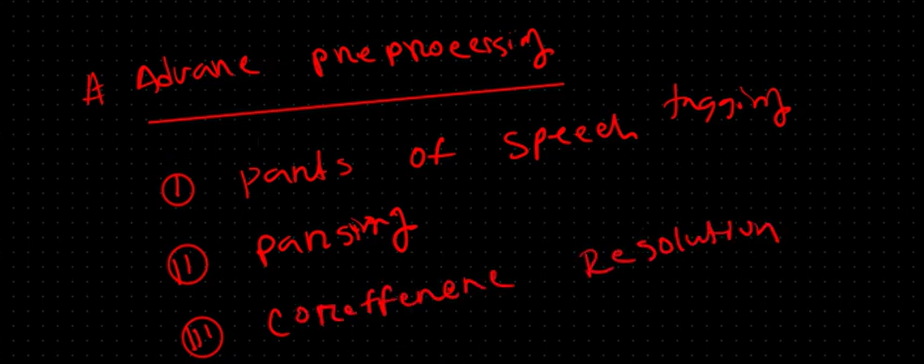 # Advane preprocessing
① parts of speech tagging
⑪ parsing
⑪⑪ Coreffenene Resolution